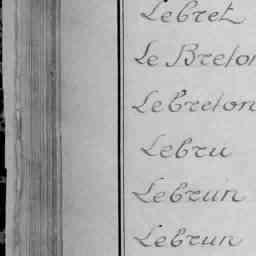 Lebret
Le Breton
Lebreton
Lebru
Lebrun
Lebrun